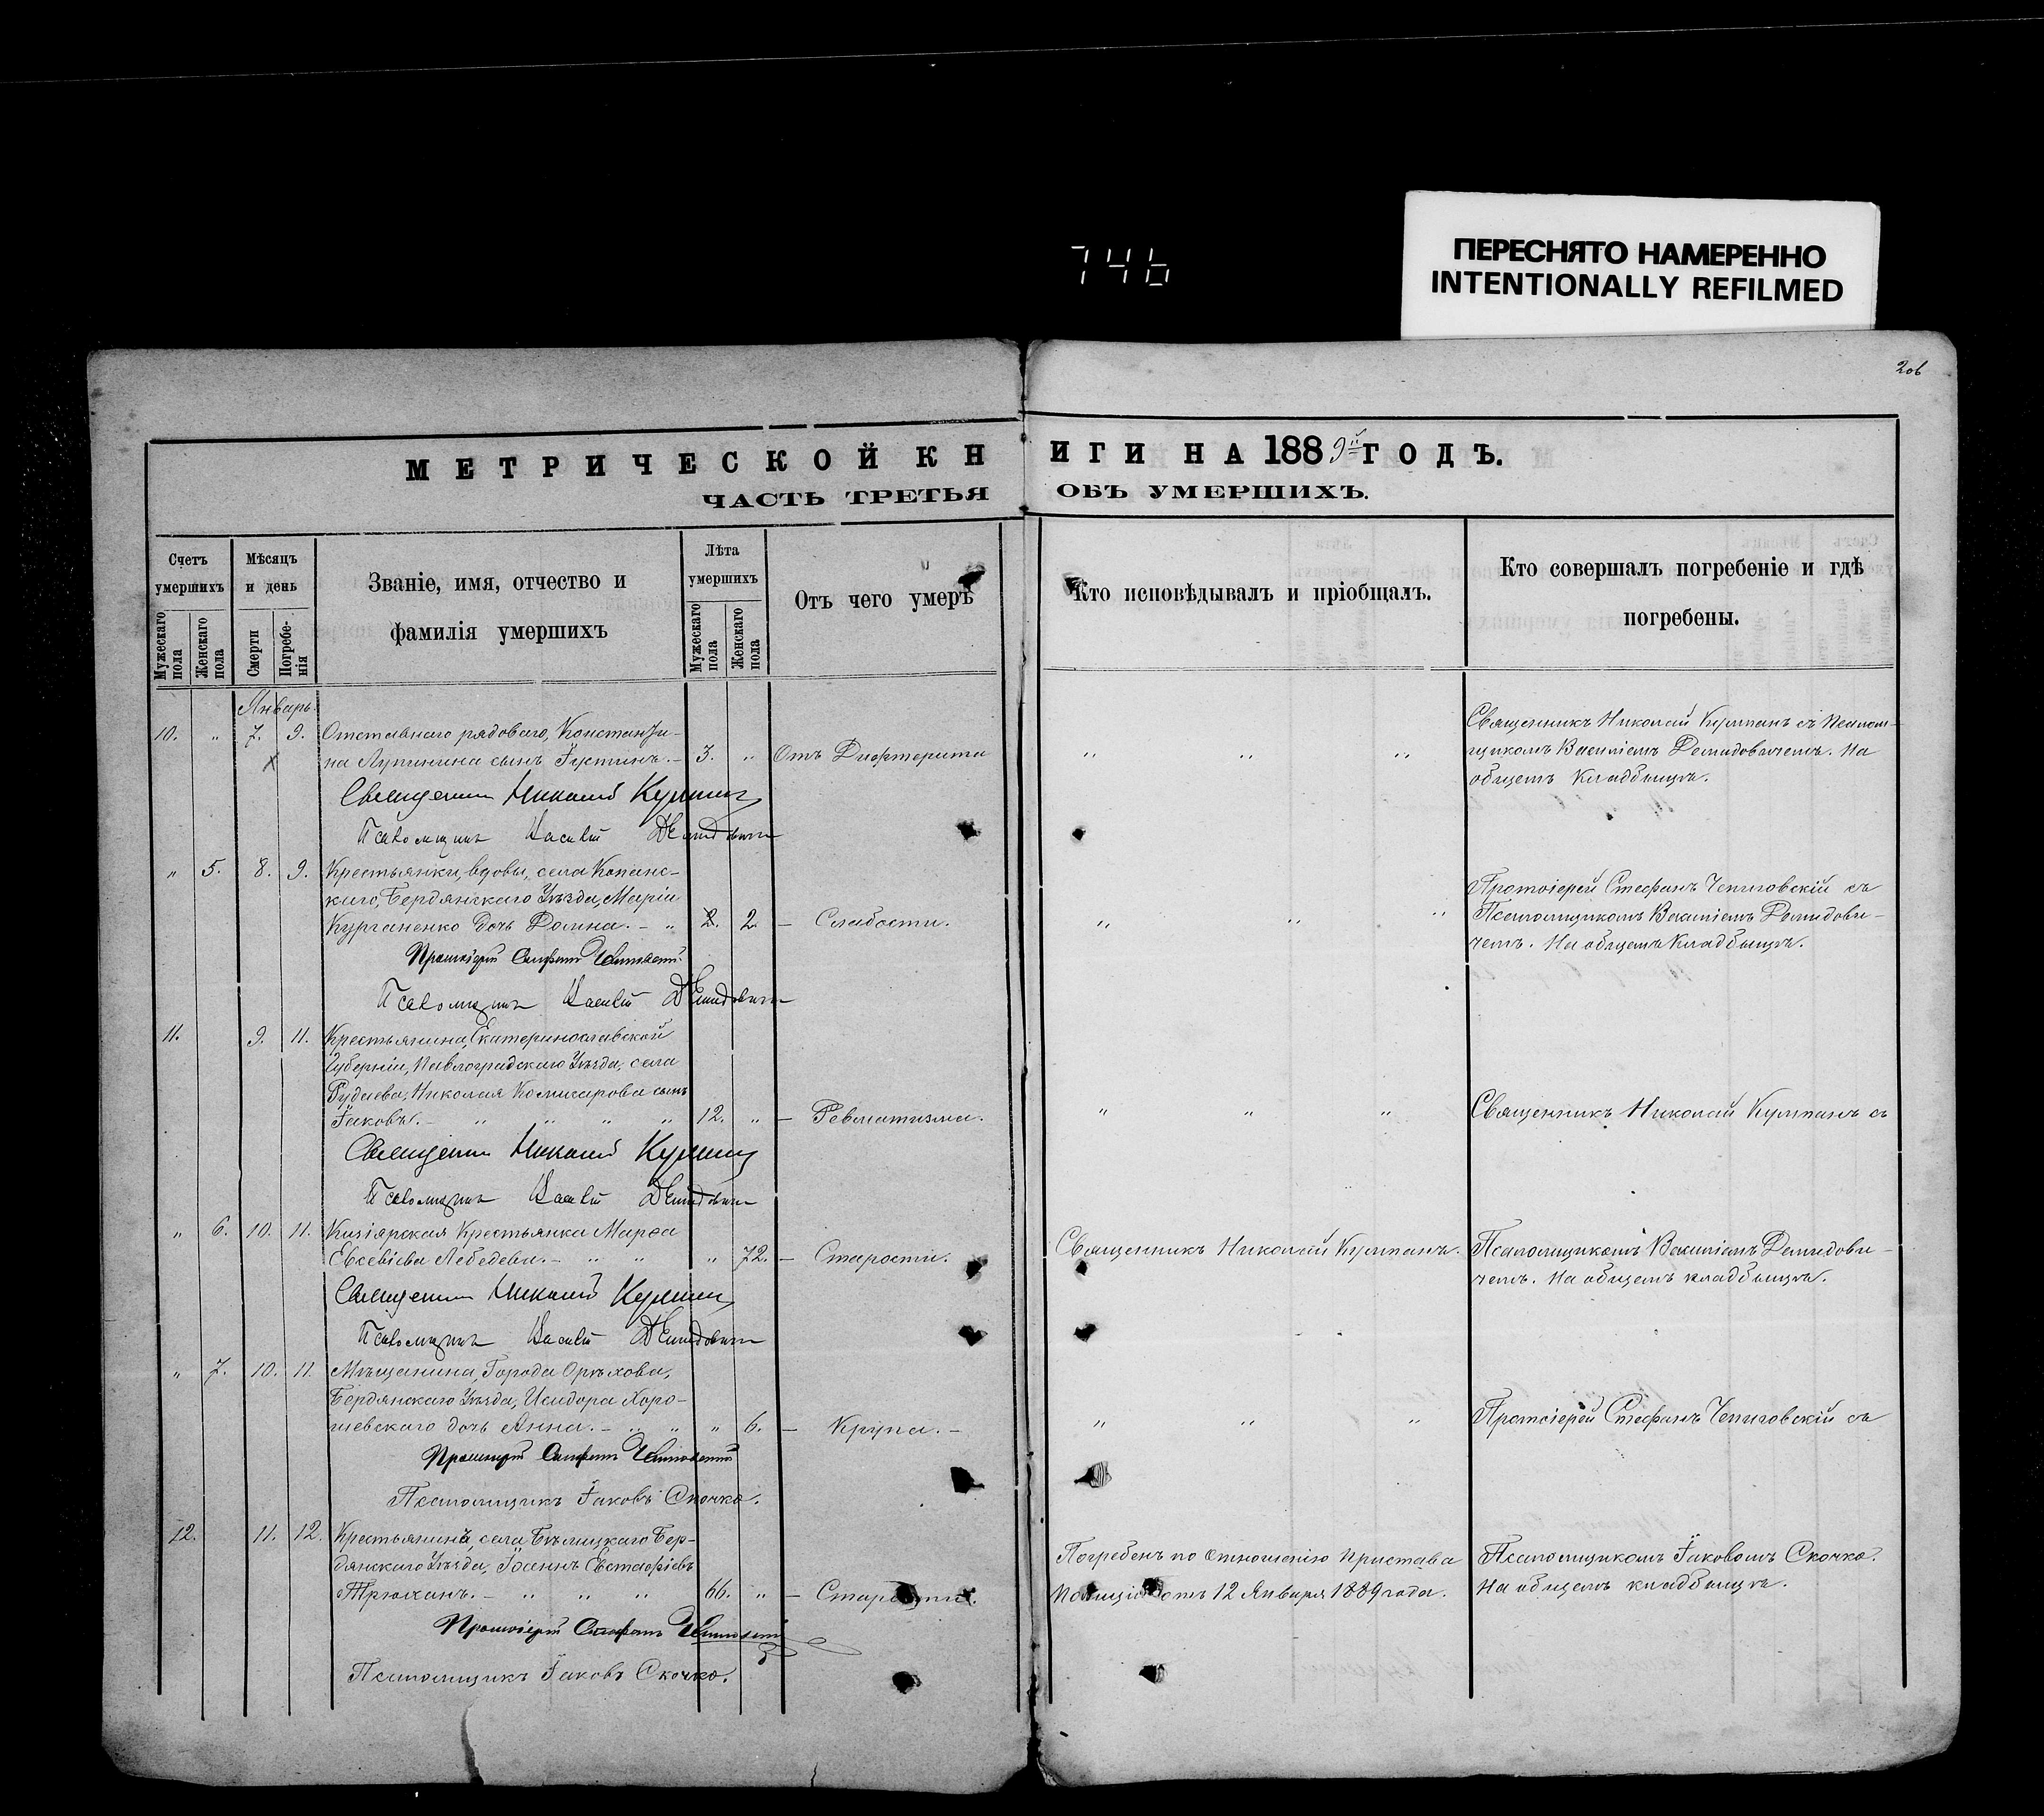 746
ПЕРЕСНЯТО НАМЕРЕННО
INTENTIONALLY REFILMED
206
МЕТРИЧЕСКОЙ КНИГИ НА 1889й ГОДЪ.
ЧАСТЬ ТРЕТЬЯ ОБЪ УМЕРШИХЪ.
Счетъ умершихъ
Мужескаго пола
Женскаго пола
Мѣсяцъ и день
Смерти
Погребенія
Званіе, имя, отчество и
фамилія умершихъ
Лѣта умершихъ
Мужескаго пола
Женскаго пола
Отъ чего умеръ
Кто исповѣдывалъ и пріобщалъ.
Кто совершалъ погребеніе и гдѣ
погребены.
Январь.
10. " 7. 9. Отставнаго рядоваго, Константи-
на Лупинина сынъ Іустинъ. – 3. " Отъ Дифтерита " " "
Священникъ Николай Курпанъ съ Псалом-
щикомъ Василіемъ Демидовичемъ. На
общемъ кладбищѣ.
Священникъ Николай
Псаломщикъ Василій Демидовичъ
" 5. 8. 9. Крестьянки, вдовы, села Копанс-
каго, Бердянскаго Уѣзда, Маріи
Курганенко дочь Домна. – " 2. 2. – Слабости. " " "
Протоіерей Стефанъ съ
Псаломщикомъ Василіемъ Демидови-
чемъ. На общемъ кладбищѣ.
Протоіерей Стефанъ
Псаломщикъ Василій Демидовичъ
11. 9. 11. Крестьянина, Екатеринославской
Губерніи, Павлоградскаго Уѣзда, села
Рудаева, Николая Комисарова сынъ
Іаковъ. – " " " " 12. " – Ревматизма. " " "
Священникъ Николай Курпанъ съ
Священникъ Николай
Псаломщикъ Василій Демидовичъ
" 6. 10. 11. Кизіярская Крестьянка Марѳа
Евсевіева Лебедева. – " " " 72. – Старости.
Священникъ Николай Курпанъ.
Псаломщикомъ Василіемъ Демидови-
чемъ. На общемъ кладбищѣ.
Священникъ Николай
Псаломщикъ Василій Демидовичъ
" 7. 10. 11. Мѣщанина, Города Орѣхова,
Бердянскаго Уѣзда, Исидора Хоро-
шевскаго дочь Анна. – " " " 6. – Крупа. – " " "
Протоіерей Стефанъ съ
Протоіерей Стефанъ
Псаломщикъ Іаковъ Скочко.
12. 11. 12. Крестьянинъ, села Бѣлицкаго Бер-
дянскаго Уѣзда, Іоаннъ Евстафіевъ
Трюханъ. – " " " 66. " – Старости.
Погребенъ по отношенію Пристава
Полиціи отъ 12 Января 1889 года.
Псаломщикомъ Іаковомъ Скочко.
На общемъ кладбищѣ.
Протоіерей Стефанъ
Псаломщикъ Іаковъ Скочко.